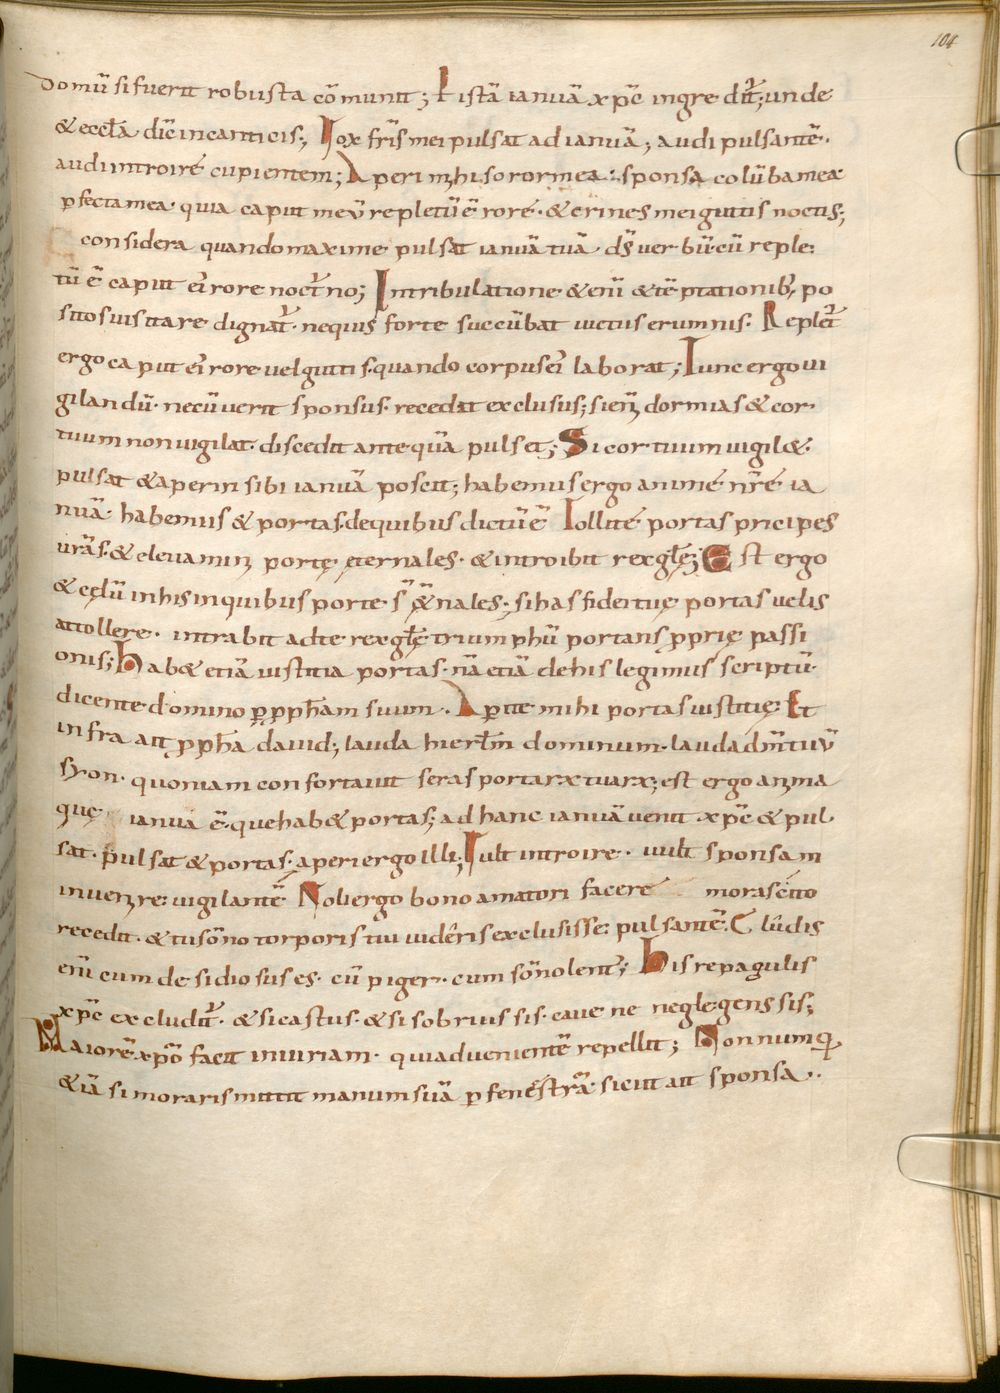 104
domū si fuerit robusta cō munit; Et istā ianuā xp̄c ingre dit᷑; unde
& eccl̄a dic̄ in canticis; Uox fr̄is mei pulsat ad ianuā; audi pulsantē.
audi introire cupientem; Aperi mihi soror mea. sponsa colūba mea
ꝑfecta mea. quia caput meū repletū ē rore. & crines mei guttis noctis;
considera quando maxime pulsat ianuā tuā d̄s uerbū. cū reple
tū ē caput ei᷑ rore noct᷑no; In tribulatione & eni᷑ & tēptationib; po
sitos uisitare dignat᷑. nequis forte succūbat uictus erumnis. Replet᷑
ergo caput ei᷑ rore uel guttis. quando corpus ei᷑ laborat; Tunc ergo ui
gilandū. ne cū uerit sponsus. recedat exclusus; si eni dormias & cor
tuum non uigilat. discedit antequā pulset; Si cor tuum uigil&.
pulsat & aperiri sibi ianuā poscit; habemus ergo anime nr̄e ia
nuā. habemus & portas. de quibus dictū ē Tollite portas pricipes
ur̄as. & eleuamini portę ęternales. & introibit rex gl̄ę; Est ergo
& ędū in his in quibus porte s̄ & ̄nales. si has fidei tuę portas uelis
attollere. intrabit ad te rex gl̄ę triumphū portans ꝓprię passi
onis; hab& etiā iustitia portas. nā etiā de his legimus scriptū.
dicente domino ꝑ ꝓph̄am suum. Aperite mihi portas iustitię. Et
infra ait ꝓph̄a dauid; lauda hierl̄m dominum. lauda dm̄ tuū
syon. quoniam confortauit seras portarꝝ tuarꝝ; est ergo anima
quę ianua ē. que hab& portas; ad hanc ianuā uenit xp̄c & pul
sat. pulsat & portas. aperi ergo illi; Uult introire. uult sponsam
inuenire uigilantē Noli ergo bono amatori facere moras. cito
recedit. & tu sōno torporis tui uideris exclusisse pulsantē. Clūdis
eni᷑ cum desidiosus es. cū piger. cum sōnolent᷑; his repagulis
xp̄c excludit᷑. & si castus. & si sobrius sis. caue ne neglegens sis;
Maiorē xp̄o facit iniuriam. qui aduenientē repellit; Non numq̄
&iā si moraris mittit manum suā ꝑ fenestrā. sicut ait sponsa.